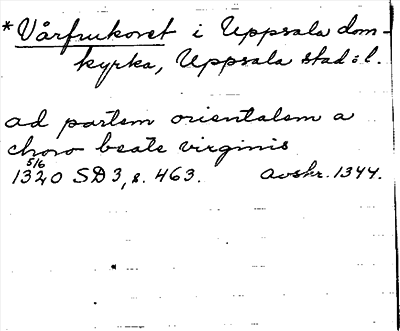 *Vårfrukoret i Uppsala dom-
kyrka, Uppsala stad o l.
ad partem orientalem a
choro beate virginis
5/6
1320 SD 3, s. 463. Avskr. 1344.